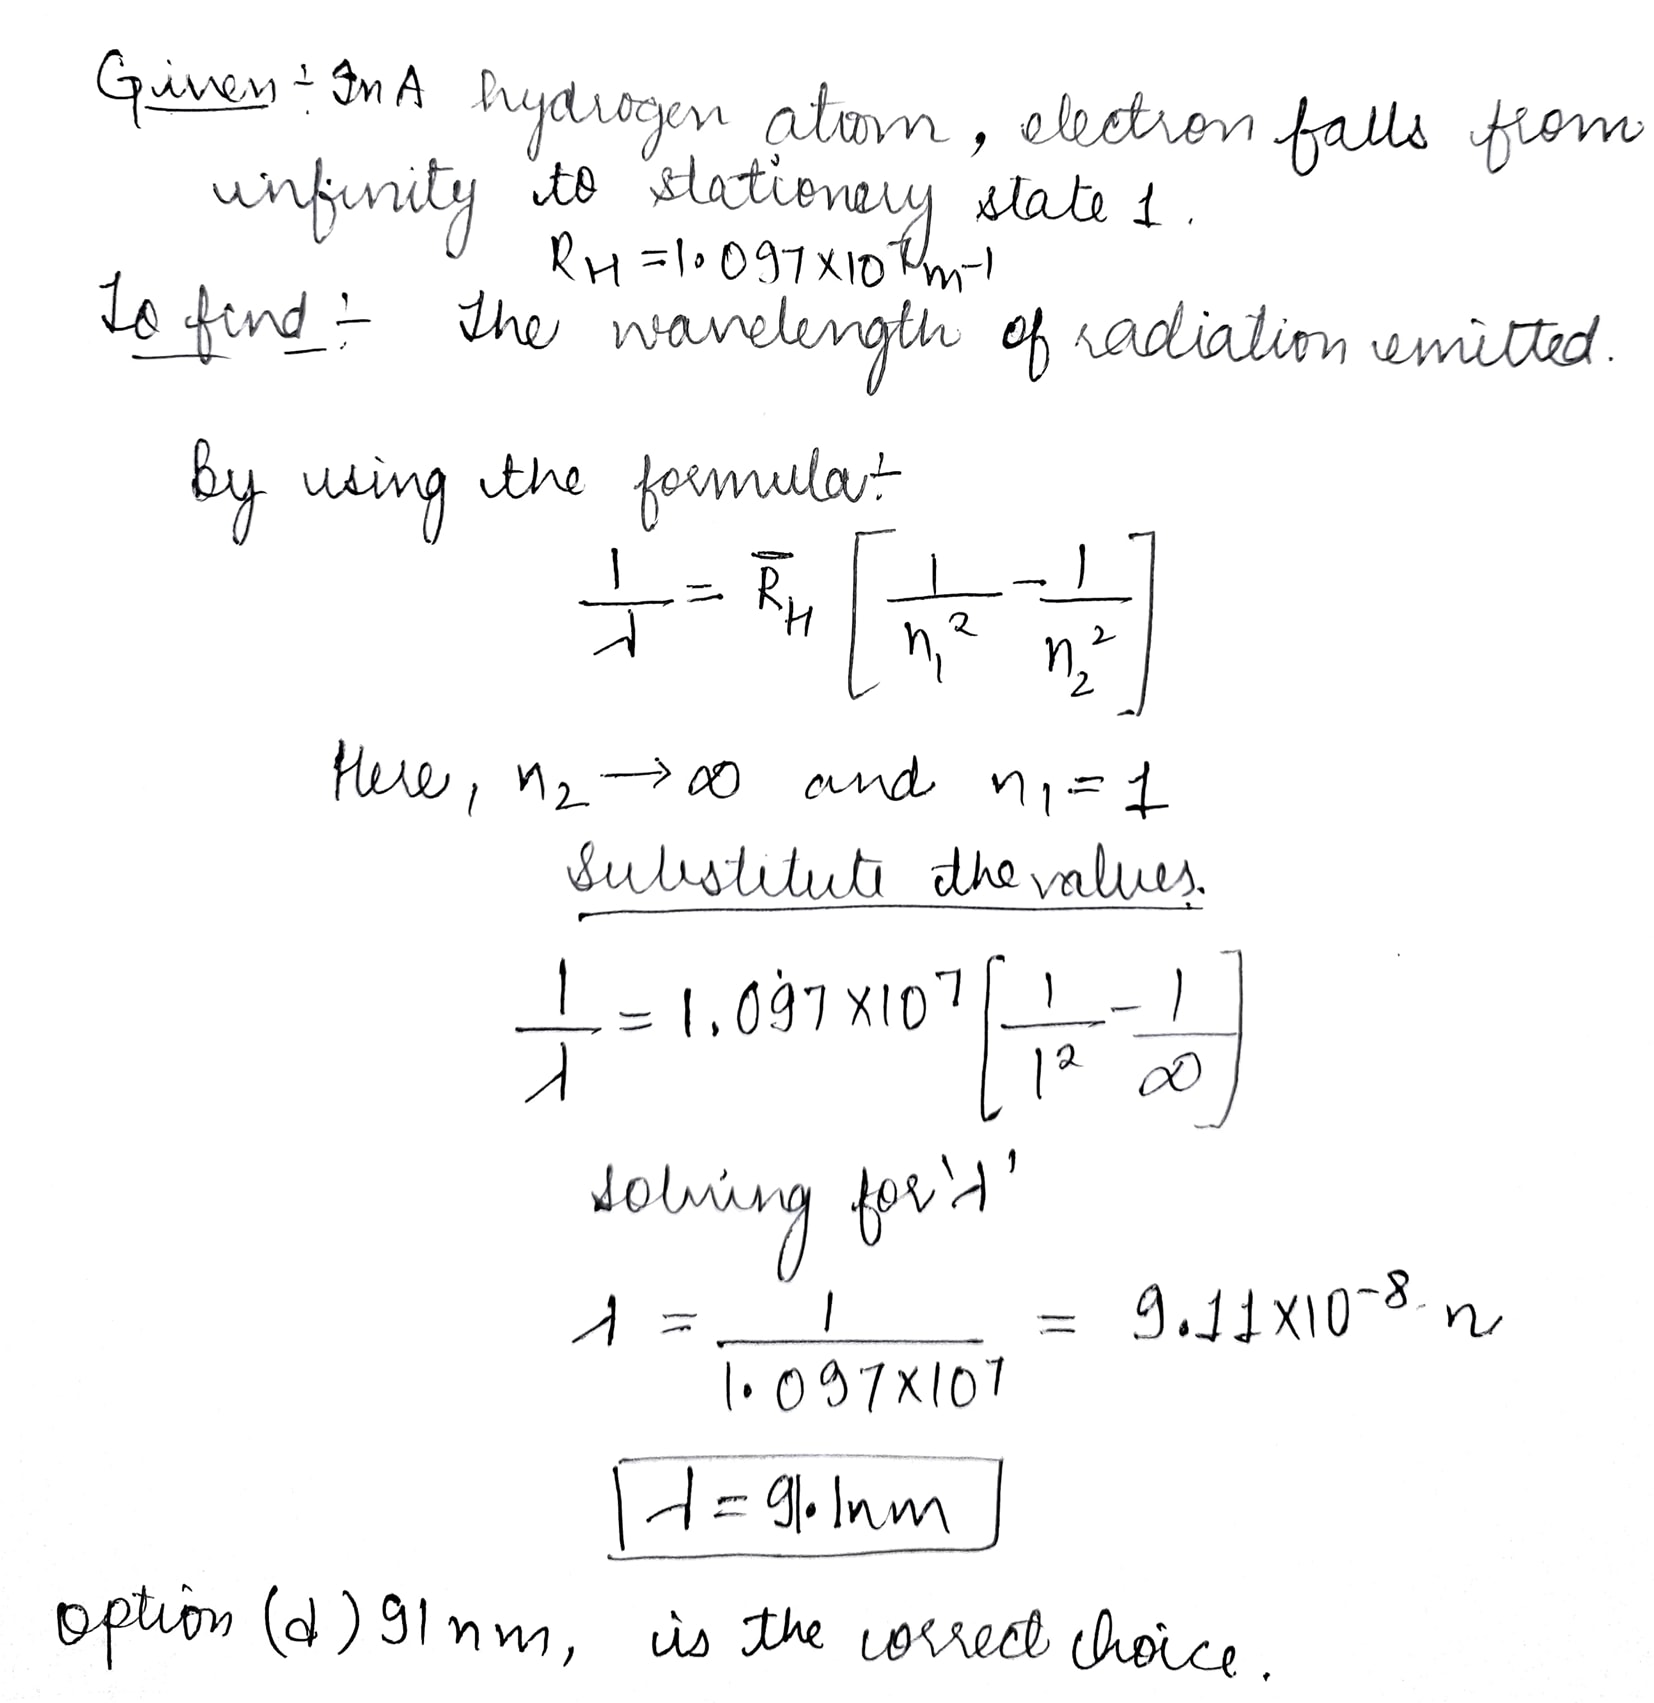 Given :- In A hydrogen atom, electron falls from
infinity to stationery state 1.
R_H = 1.097×10^7 m^-1
To find :- The wavelength of radiation emitted.
By using the formula :-
1/λ = R̅_H [1/n_1^2 - 1/n_2^2]
Here, n_2 → ∞ and n_1 = 1
Substitute the values.
1/λ = 1.097×10^7 [1/1^2 - 1/∞]
solving for 'λ'
λ = 1/1.097×10^7 = 9.11×10^-8 n
λ = 91.1nm
option (d) 91nm, is the correct choice.